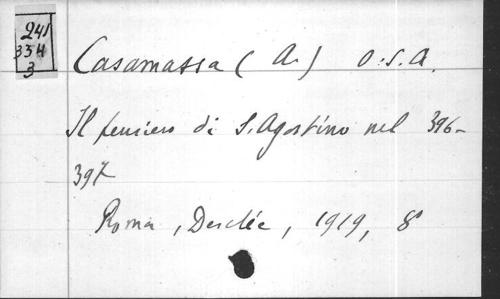 241
334
3
Casamassa (A.) O.S.A.
Il pensiero di S. Agostino nel 396-
397
Roma, Desclée, 1919, 8°